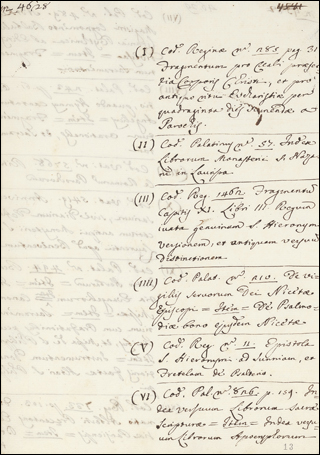 46/28
(I) Cod. Reginæ nº. 285 pag. 31
Fragmentum pro reali præsen
tia Corporis Christi, et pro
antiquo ritu Eucharistiæ per
quadraginta dies a
Parochis.
(II) Cod. Palatinus nº. 57. Index
Librorum Monasterii S. Naza
rii in
(III) Cod. Reg. 1462 Fragmentum
Capitis XI. Libri III Regum
iuxta genuinam S. Hieronymi
versionem, et antiquam versuum
distinctionem
(IIII) Cod. Palat. nº. 210. De vi
giliis servorum Dei Nicetæ
Episcopi = Item = De Psalmo
diæ bono ejusdem Nicetæ
(V) Cod. Reg. nº. 11. Epistola
S. Hieronymi ad Sunniam, et
Fretelam de Psalterio.
(VI) Cod. Pal. nº. 826. p. 159. In
dex versuum Librorum Sacræ
Scripturæ = Item = Index versu
um Librorum Apocryphorum